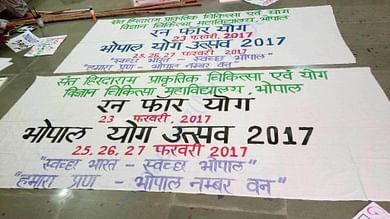 संत हिरदाराम प्राकृतिक चिकित्सा एवं योग
विज्ञान चिकित्सा महाविद्यालय, भोपाल
रन फार योग
23 फरवरी, 2017
भोपाल योग उत्सव 2017
25, 26, 27 फरवरी 2017
"स्वच्छ भारत - स्वच्छ भोपाल"
"हमारा प्रण - भोपाल नम्बर वन"
संत हिरदाराम प्राकृतिक चिकित्सा एवं योग
विज्ञान चिकित्सा महाविद्यालय, भोपाल
रन फार योग
23 फरवरी, 2017
भोपाल योग उत्सव 2017
25, 26, 27 फरवरी 2017
"स्वच्छ भारत - स्वच्छ भोपाल"
"हमारा प्रण - भोपाल नम्बर वन"